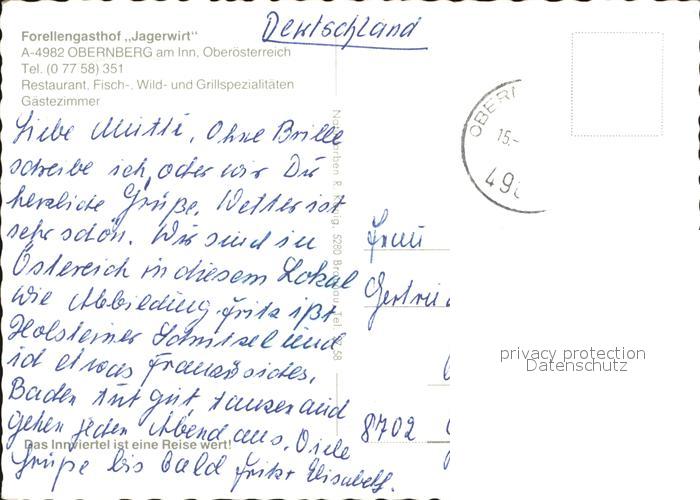 Deutschland
Forellengasthof „Jagerwirt"
A-4982 OBERNBERG am Inn, Oberösterreich
Tel. (0 77 58) 351
Restaurant, Fisch-, Wild- und Grillspezialitäten
Gästezimmer
Liebe Mutti, Ohne Brille
schreibe ich, oder wir Dir
herzliche Grüße. Wetter ist
sehr schön. Wir sind in
Östereich in diesem Lokal
wie Abbiedung Fritz ißt
Holsteiner Schnitzel und
ich etwas Französiches.
Baden tut gut, tanzen und
gehen jeden Abend aus. Viele
Grüße bis bald Fritz + Elisabeth.
Das Innviertel ist eine Reise wert!
OBERN
15.-
498
Frau
Gertrud
8702
5280
Tel.
privacy protection
Datenschutz